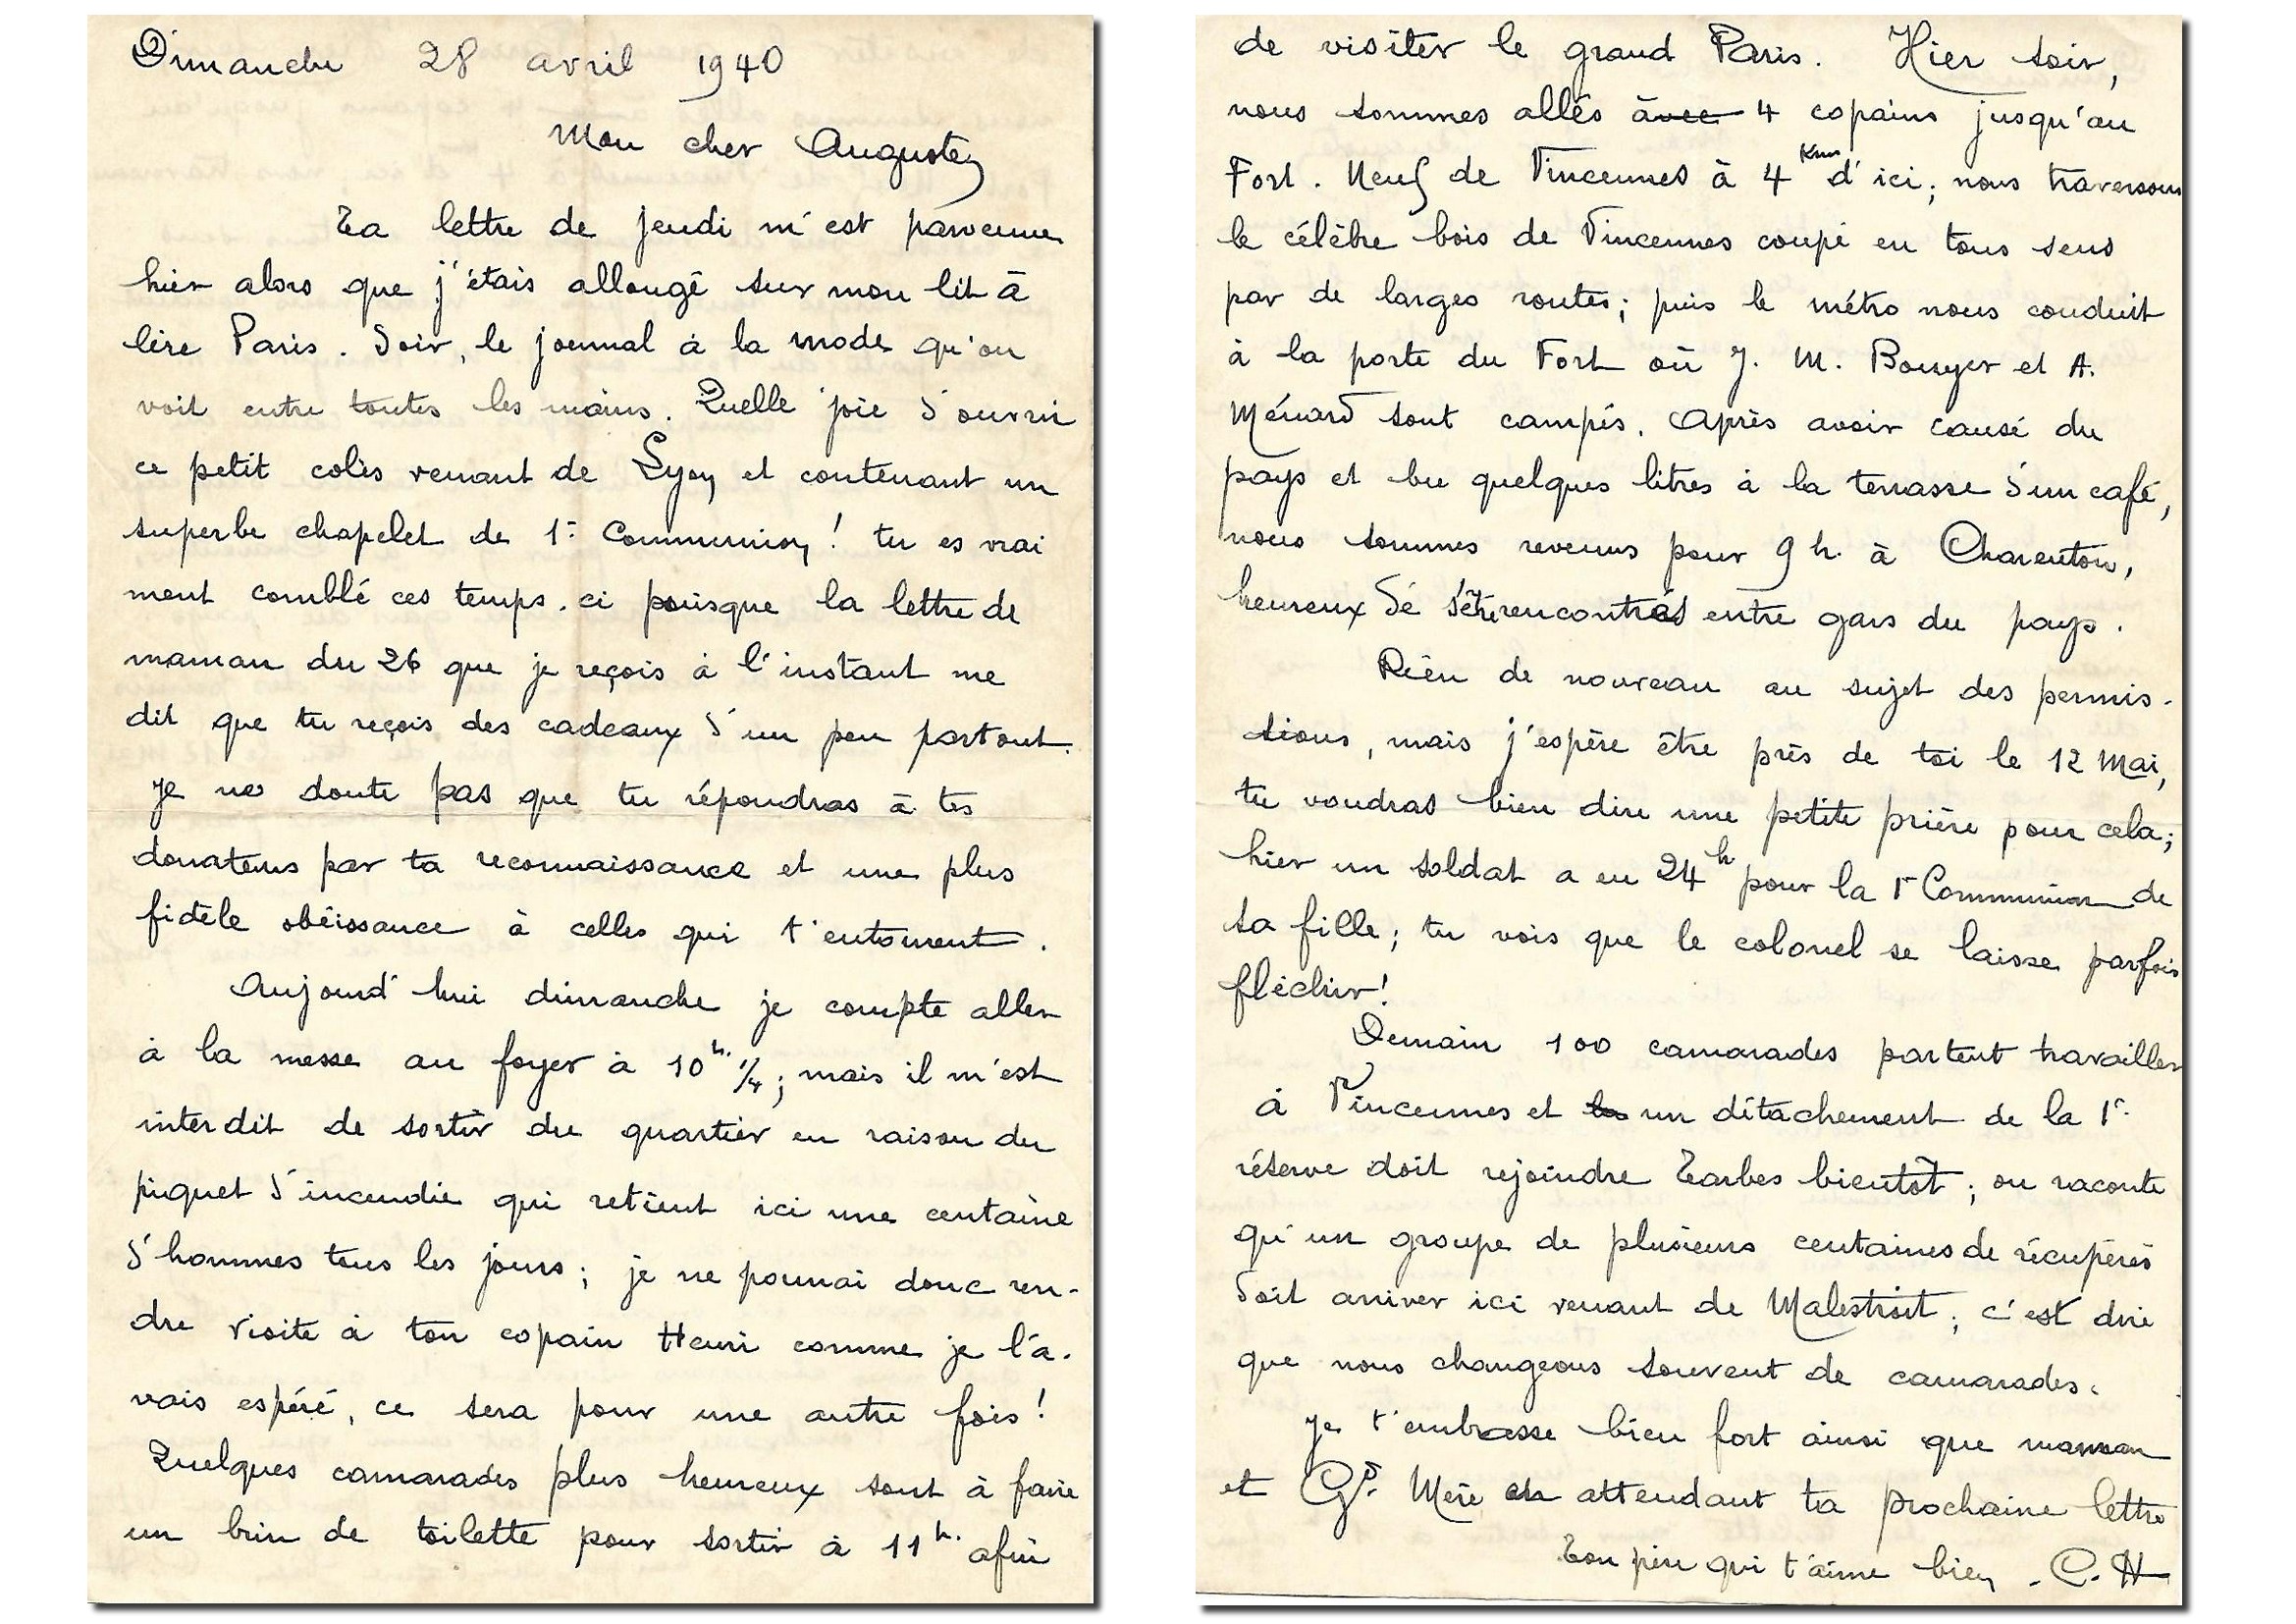 Dimanche 28 avril 1940
Mon cher Augustin
Ta lettre de jeudi m'est parvenue
hier alors que j'étais allongé sur mon lit à
lire Paris. Soir, le journal à la mode qu'on
voit entre toutes les mains. Quelle joie d'ouvrir
ce petit colis venant de Lyon et contenant un
superbe chapelet de 1e Communion ! tu es vrai
ment comblé ces temps. ci puisque la lettre de
maman du 26 que je reçois à l'instant me
dit que tu reçois des cadeaux d'un peu partout.
Je ne doute pas que tu répondras à tes
donateurs par ta reconnaissance et une plus
fidèle obéissance à celles qui t'entourent.
Aujourd'hui dimanche je compte aller
à la messe au foyer à 10h. 1/4 ; mais il m'est
interdit de sortir du quartier en raison du
piquet d'incendie qui retient ici une centaine
d'hommes tous les jours ; je ne pourrai donc ren-
dre visite à ton copain Henri comme je l'a-
vais espéré, ce sera pour une autre fois !
Quelques camarades plus heureux sont à faire
un brin de toilette pour sortir à 11h. afin
de visiter le grand Paris. Hier soir,
nous sommes allés avec 4 copains jusqu'au
Fort. Neuf de Vincennes à 4 Km d'ici ; nous traversons
le célèbre bois de Vincennes coupé en tous sens
par de larges routes ; puis le métro nous conduit
à la porte du Fort où J. M. Bouyer et A.
Ménard sont campés. Après avoir causé du
pays et bu quelques litres à la terrasse d'un café,
nous sommes revenus pour 9 h. à Charenton,
heureux de s'être rencontrés entre gars du pays.
Rien de nouveau au sujet des permis-
sions, mais j'espère être près de toi le 12 Mai,
tu voudras bien dire une petite prière pour cela ;
hier un soldat a eu 24h pour la 1e Communion de
sa fille ; tu vois que le colonel se laisse parfois
fléchir !
Demain 100 camarades partent travailler
à Vincennes et un détachement de la 1e
réserve doit rejoindre Tarbes bientôt ; on raconte
qu'un groupe de plusieurs centaines de récupérés
doit arriver ici venant de Malestroit ; c'est dire
que nous changeons souvent de camarades.
Je t'embrasse bien fort ainsi que maman
et Gd. Mère en attendant ta prochaine lettre
Ton père qui t'aime bien. C. H